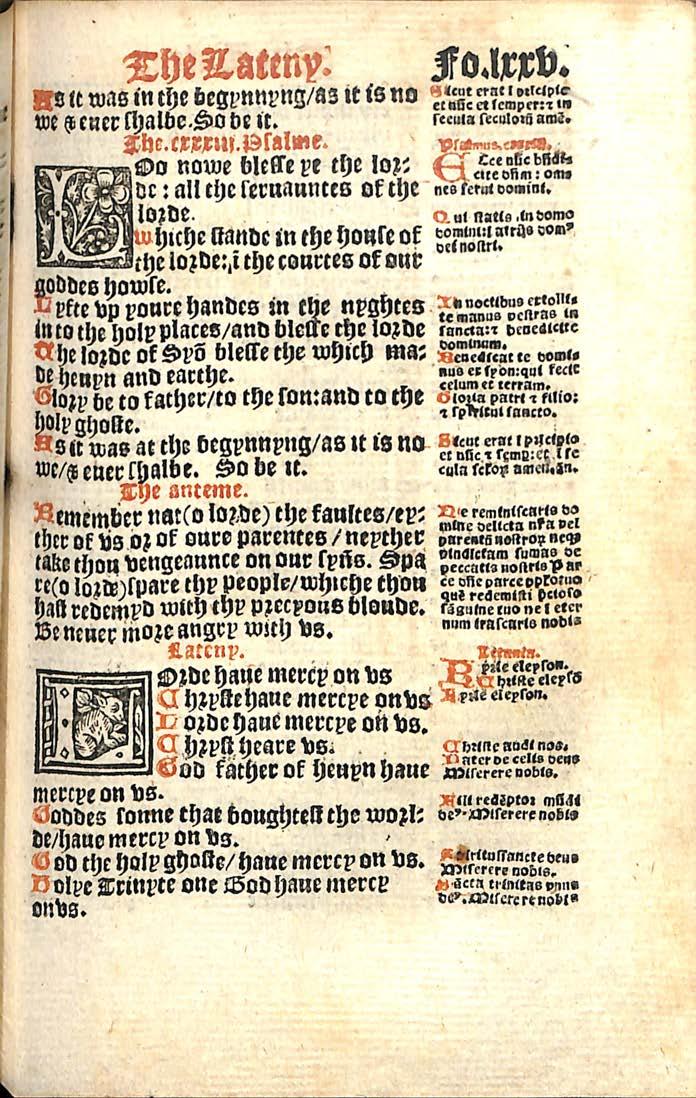 The Lateny.
As it was in the begynnyng/as it is no
we & euer shalbe. So be it.
The.cxxxiij.Psalme.
LOo nowe blesse ye the lor-
de : all the seruauntes of the
lorde.
whiche stande in the house of
the lorde:,ī the courtes of our
goddes howse.
Lyfte vp youre handes in the nyghtes
in to the holy places/and blesse the lorde
The lorde of Syō blesse the which ma-
de heuyn and earthe.
Glory be to father/to the son:and to the
holy ghoste.
As it was at the begynnyng/as it is no
we/& euer shalbe. So be it.
The anteme.
Remember nat(o lorde) the faultes/ey-
ther of vs or of oure parentes / neyther
take thou vengeaunce on our syñs. Spa
re(o lorde)spare thy people/whiche thou
hast redemyd with thy precyous bloude.
Be neuer more angry with vs.
Lateny.
LOrde haue mercy on vs
Chryste haue mercye on vs
Lorde haue mercye on vs.
Chryst heare vs.
God father of heuyn haue
mercye on vs.
Goddes sonne that boughtest the worl-
de/haue mercy on vs.
God the holy ghoste/ haue mercy on vs.
Holye Trinyte one God haue mercy
on vs.
Fo.lxxv.
Sicut erat ī pricipio
et nūc et semper:⁊ in
secula seculorū amē.
Psalmus.
Ecce nūc bñdi-
cite dñm : oms
nes serui domini.
Qui statis .in domo
domini:ī atrijs domꝰ
dei nostri.
In noctibus extollis
te manus vestras in
sancta:⁊ benedicite
dominum.
Benedicat te domis
nus ex syon:qui fecit
celum et terram.
Gloria patri ⁊ filio:
⁊ spiritui sancto.
Sicut erat ī pricipio
et nūc ⁊ semp:et ī se
cula selorꝝ amen.
Ne reminiscaris do
mine delicta nr̄a vel
parentū nostroꝝ neqꝫ
vindictam sumas de
peccatis nostris Par
ce dñe parce pplo tuo
quē redemisti pcioso
sāguine tuo ne ī eter
num irascaris nobis
Letania.
Kyrie eleyson.
Christe eleysō
Kyrie eleyson.
Christe audi nos.
Pater de celis deus
Miserere nobis.
Fili redēptor mūdi
deꝰ. Miserere nobis
Spiritus sancte deus
Miserere nobis.
Sācta trinitas vnus
deꝰ. Miserere nobis